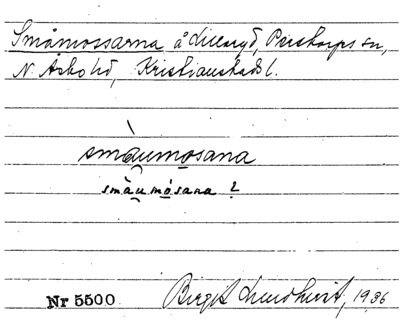 Småmossarna å Lillaryd, Perstorps sn,
N. Åsbo hd, Kristianstads l.
småu̯mo̲sana
småu̯mo̲sana ?
Nr 5500 Birgit Lundkvist, 1936